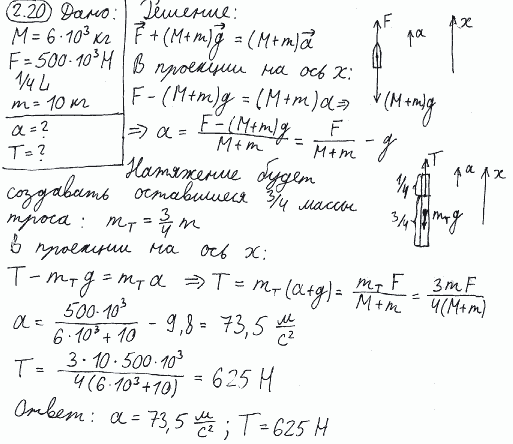 2.20 Дано:
M = 6·10³ кг
F = 500·10³ Н
1/4 L
m = 10 кг
a = ?
T = ?
Решение:
F + (M+m)g = (M+m)a
В проекции на ось x:
F - (M+m)g = (M+m)a ⇒
⇒ a = (F-(M+m)g)/(M+m) = F/(M+m) - g
F
a
x
(M+m)g
Натяжение будет
создавать оставшиеся 3/4 массы
троса: mт = 3/4 m
В проекции на ось x:
T - mт g = mт a ⇒ T = mт (a+g) = mт F/(M+m) = 3mF/4(M+m)
T
1/4
3/4
mт g
a
x
a = 500·10³/(6·10³+10) - 9,8 = 73,5 м/с²
T = 3·10·500·10³/4(6·10³+10) = 625 Н
Ответ: a = 73,5 м/с²; T = 625 Н